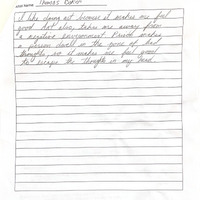 Thomas
I like doing art because it makes me feel
good. Art also, takes me away from
a negative environment. Prison makes
a person dwell in the zone of bad
thoughts, so it makes me feel good
to escape the thoughts in my head.